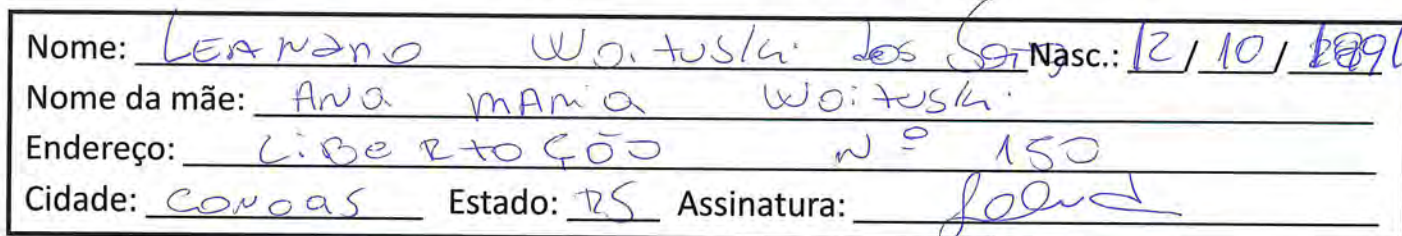 Nome: LEANDRO Woituski dos Santos Nasc.: 12/10/
Nome da mãe: ANA MARIA Woituski
Endereço: LiBeRtAÇÃO Nº 150
Cidade: CANOAS Estado: RS Assinatura: